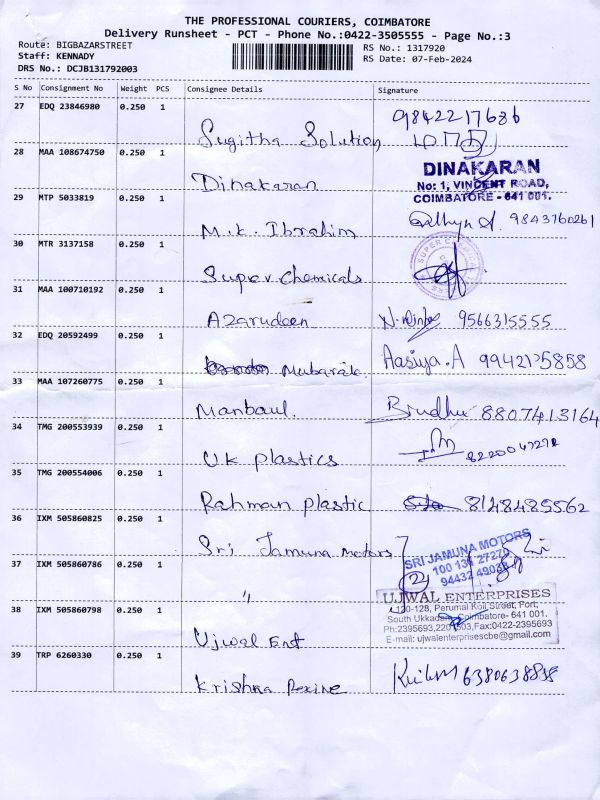 THE PROFESSIONAL COURIERS, COIMBATORE
Delivery Runsheet - PCT - Phone No.:0422-3505555 - Page No.:3
Route: BIGBAZARSTREET
Staff: KENNADY
DRS No.: DCJB131792003
RS No.: 1317920
RS Date: 07-Feb-2024
S No Consignment No Weight PCS Consignee Details Signature
27 EDQ 23846980 0.250 1 Sugitha Solution 9842217686
28 MAA 108674750 0.250 1 Dinakaran
DINAKARAN
No: 1, VINCENT ROAD,
COIMBATORE - 641 001.
29 MTP 5033819 0.250 1 M.K. Ibrahim 9843760261
30 MTR 3137158 0.250 1 Super Chemicals
31 MAA 100710192 0.250 1 Azarudeen 9566315555
32 EDQ 20592499 0.250 1 Mubarak Aasiya.A 9942175858
33 MAA 107260775 0.250 1 Manbaul. Brudhu 8807413164
34 TMG 200553939 0.250 1 UK plastics
35 TMG 200554006 0.250 1 Rahman plastic 8148485562
36 IXM 505860825 0.250 1 Sri Jamuna motors
SRI JAMUNA MOTORS
37 IXM 505860786 0.250 1 "
38 IXM 505860798 0.250 1 Ujwal Ent
UJWAL ENTERPRISES
120-128, Perumal Koil Street, Fort,
South Ukkadam, Coimbatore- 641 001.
Fax:0422-2395693
E-mail: ujwalenterprisescbe@gmail.com
39 TRP 6260330 0.250 1 Krishna Rexine 6380638838